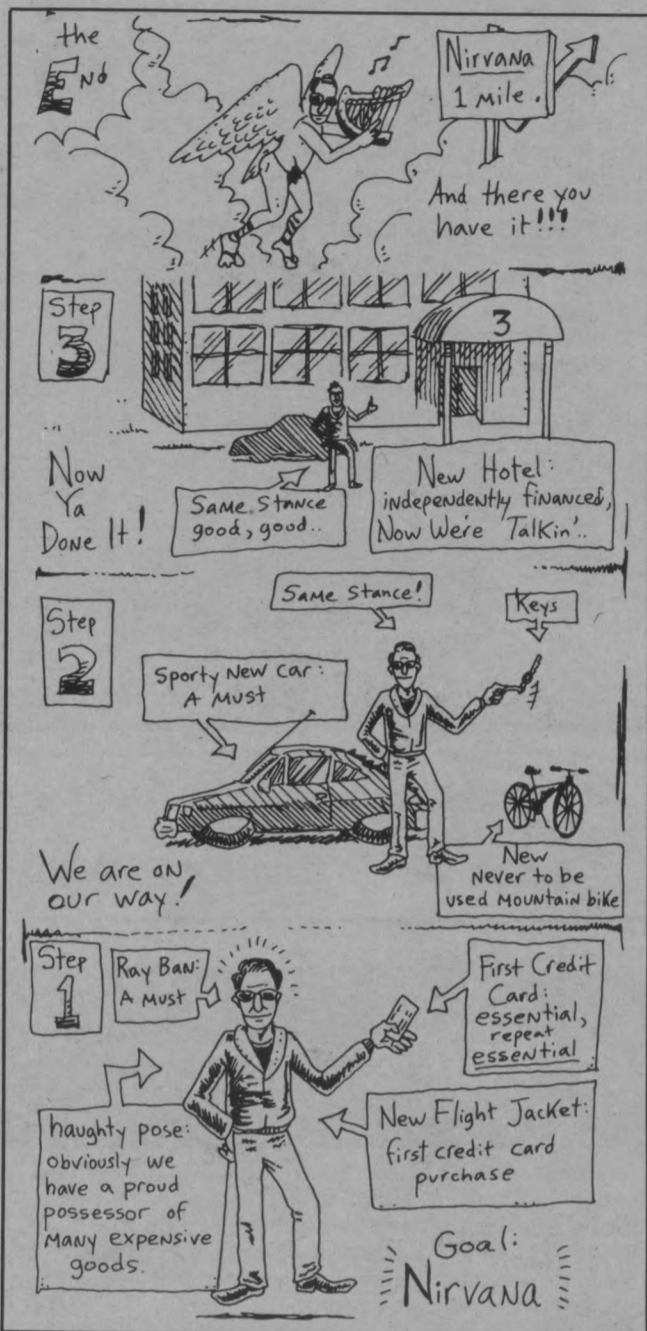 the
End
Nirvana
1 Mile.
And there you
have it!!!
Step
3
3
Now
Ya
Done It!
Same Stance
good, good..
New Hotel:
independently financed,
Now We're Talkin'..
Step
2
Same Stance!
Keys
Sporty New Car:
A Must
We are on
our way!
New
Never to be
used Mountain bike
Step
1
Ray Ban:
A Must
First Credit
Card:
essential,
repeat
essential
haughty pose:
obviously we
have a proud
possessor of
Many expensive
goods.
New Flight Jacket:
first credit card
purchase
Goal:
Nirvana